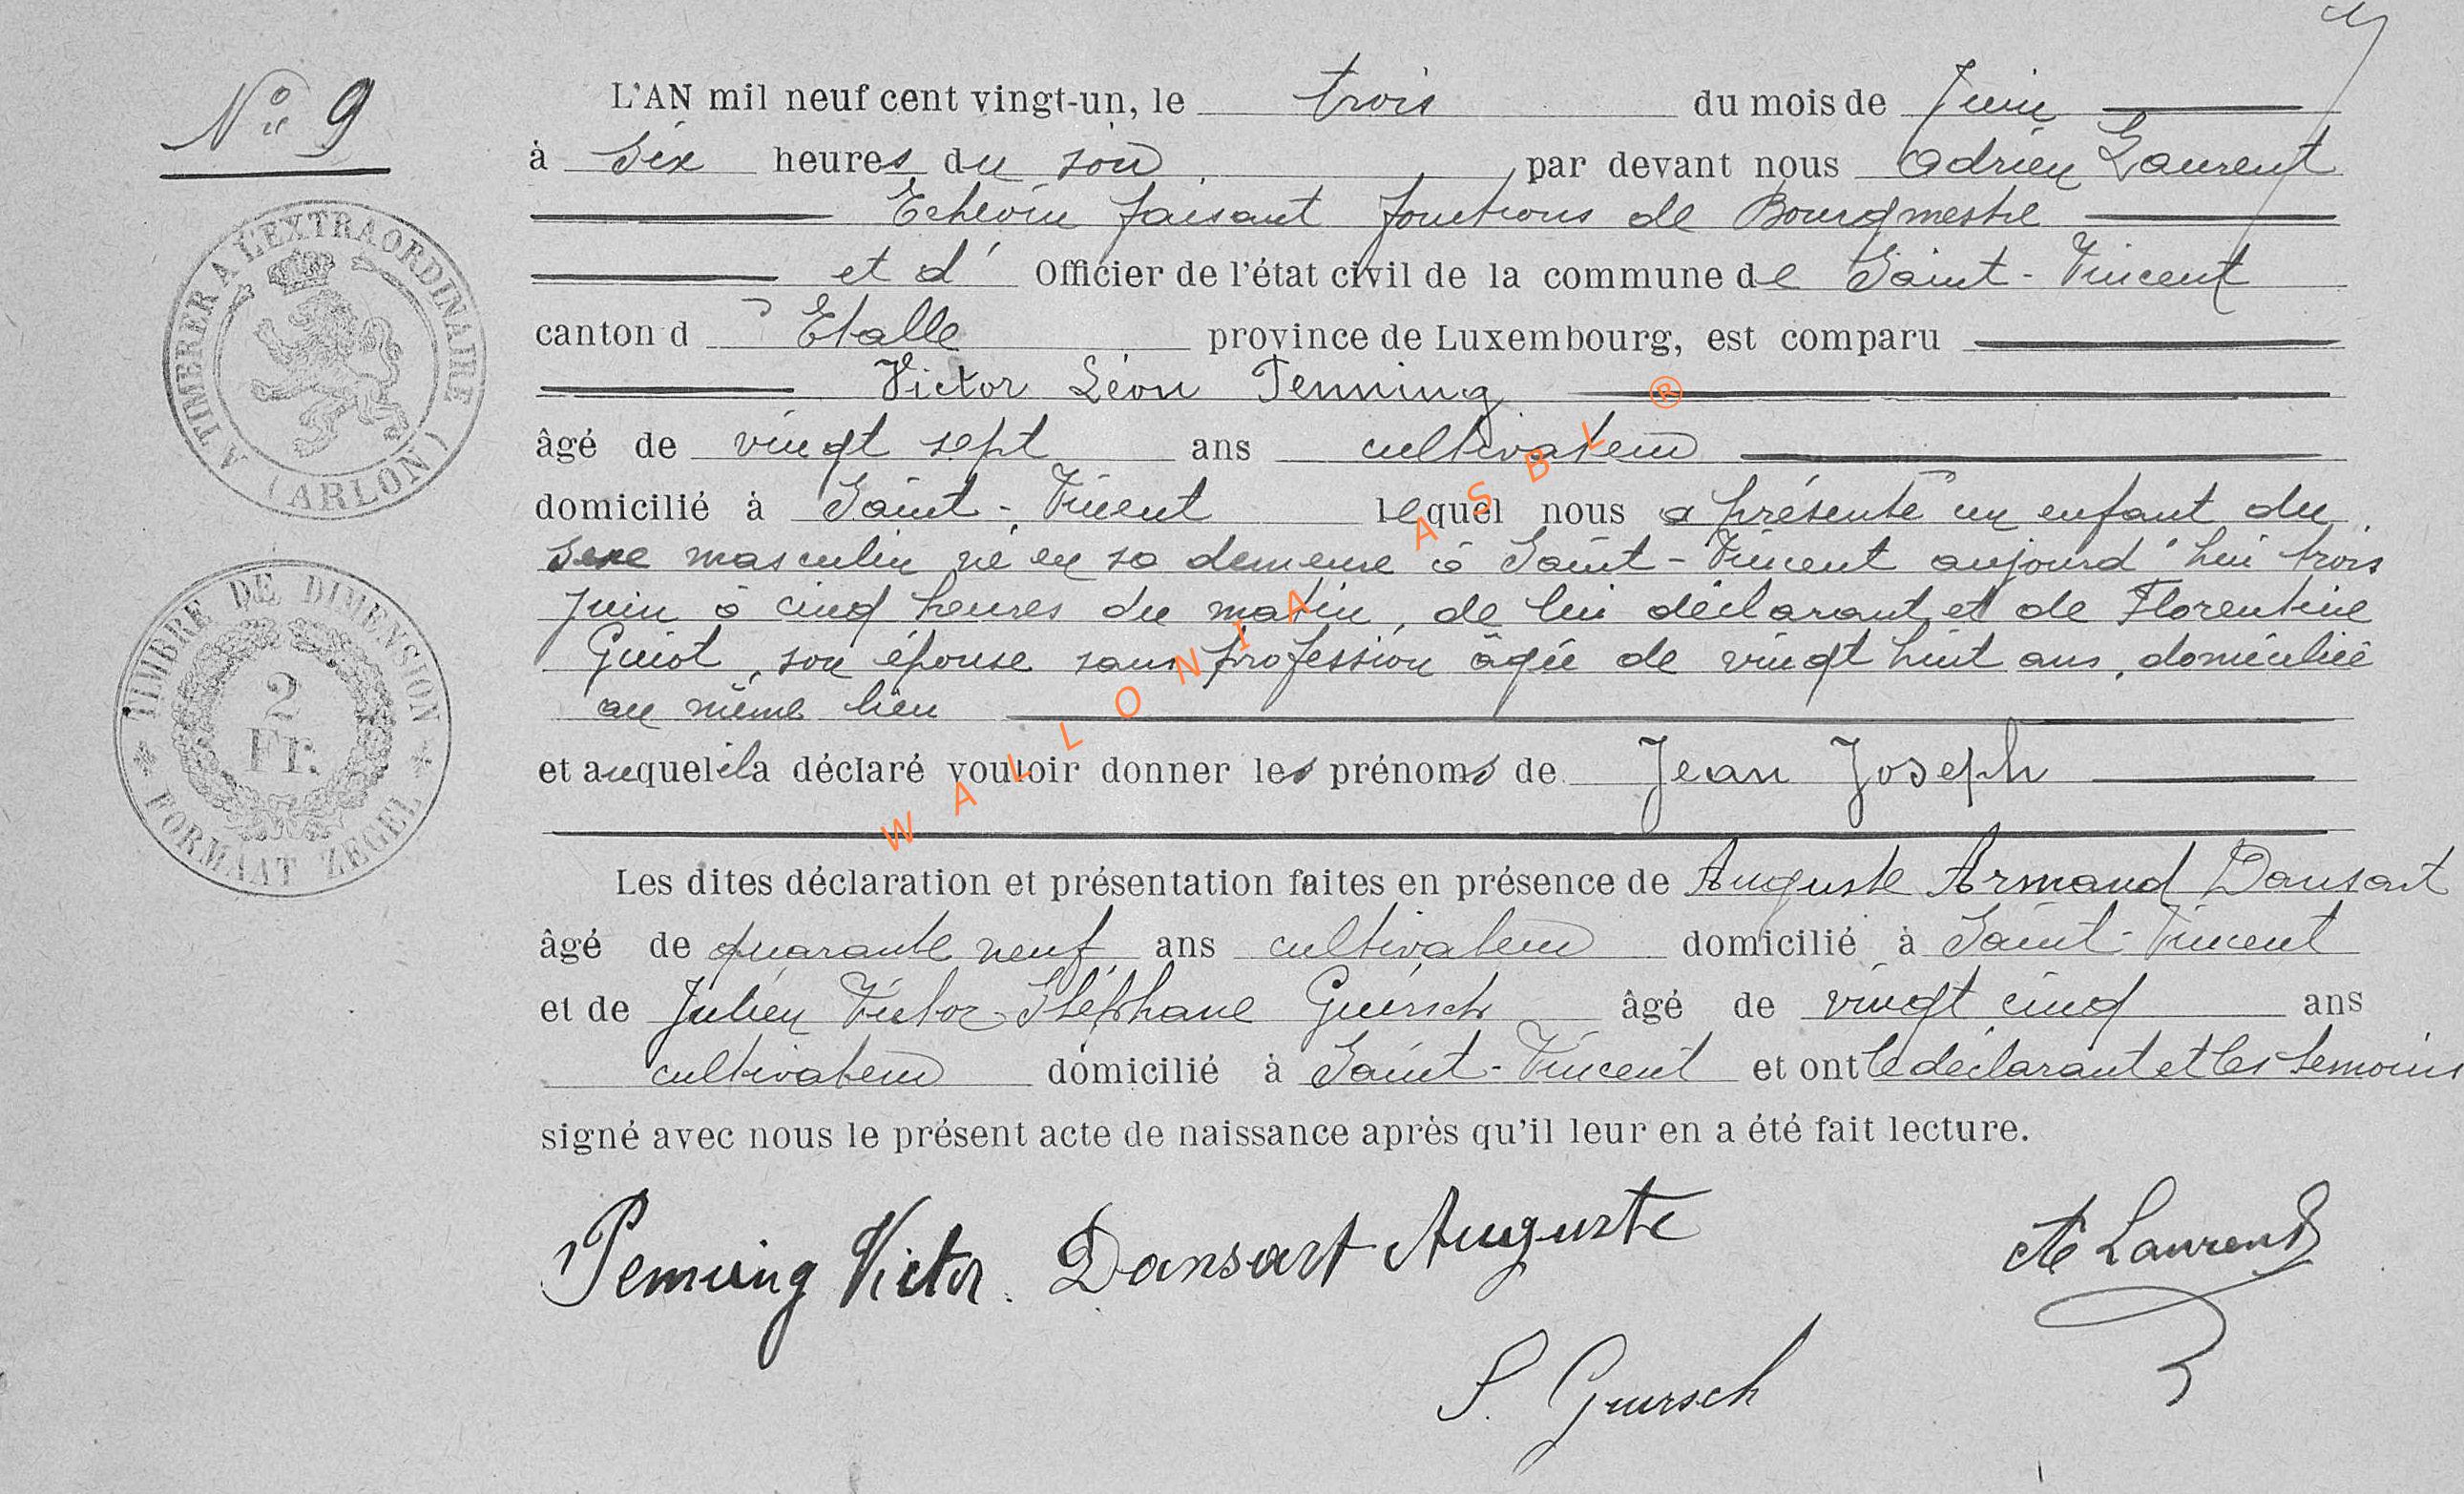 No 9
L'AN mil neuf cent vingt-un, le trois du mois de Juin
à Six heures du soir par devant nous Adrien Laurent
Echevin faisant fonctions de Bourgmestre
et d' Officier de l'état civil de la commune de Saint-Vincent
canton d'Etalle province de Luxembourg, est comparu
Victor Léon Penning
âgé de vingt sept ans cultivateur
domicilié à Saint-Vincent lequel nous a présenté un enfant du
sexe masculin né en sa demeure à Saint-Vincent aujourd'hui trois
Juin à cinq heures du matin, de lui déclarant et de Florentine
Guiot, son épouse sans profession âgée de vingt huit ans, domiciliée
au même lieu
et auquel il a déclaré vouloir donner les prénoms de Jean Joseph
Les dites déclaration et présentation faites en présence de Auguste Armand Dansart
âgé de quarante neuf ans cultivateur domicilié à Saint-Vincent
et de Julien Victor Stéphane Guirsch âgé de vingt cinq ans
cultivateur domicilié à Saint-Vincent et ont le déclarant et les témoins
signé avec nous le présent acte de naissance après qu'il leur en a été fait lecture.
Penning Victor. Dansart Auguste
Ad Laurent
S. Guirsch
A TIMBRER A L'EXTRAORDINAIRE
(ARLON)
TIMBRE DE DIMENSION
2
Fr.
FORMAAT ZEGEL
WALLONIA ASBL ®